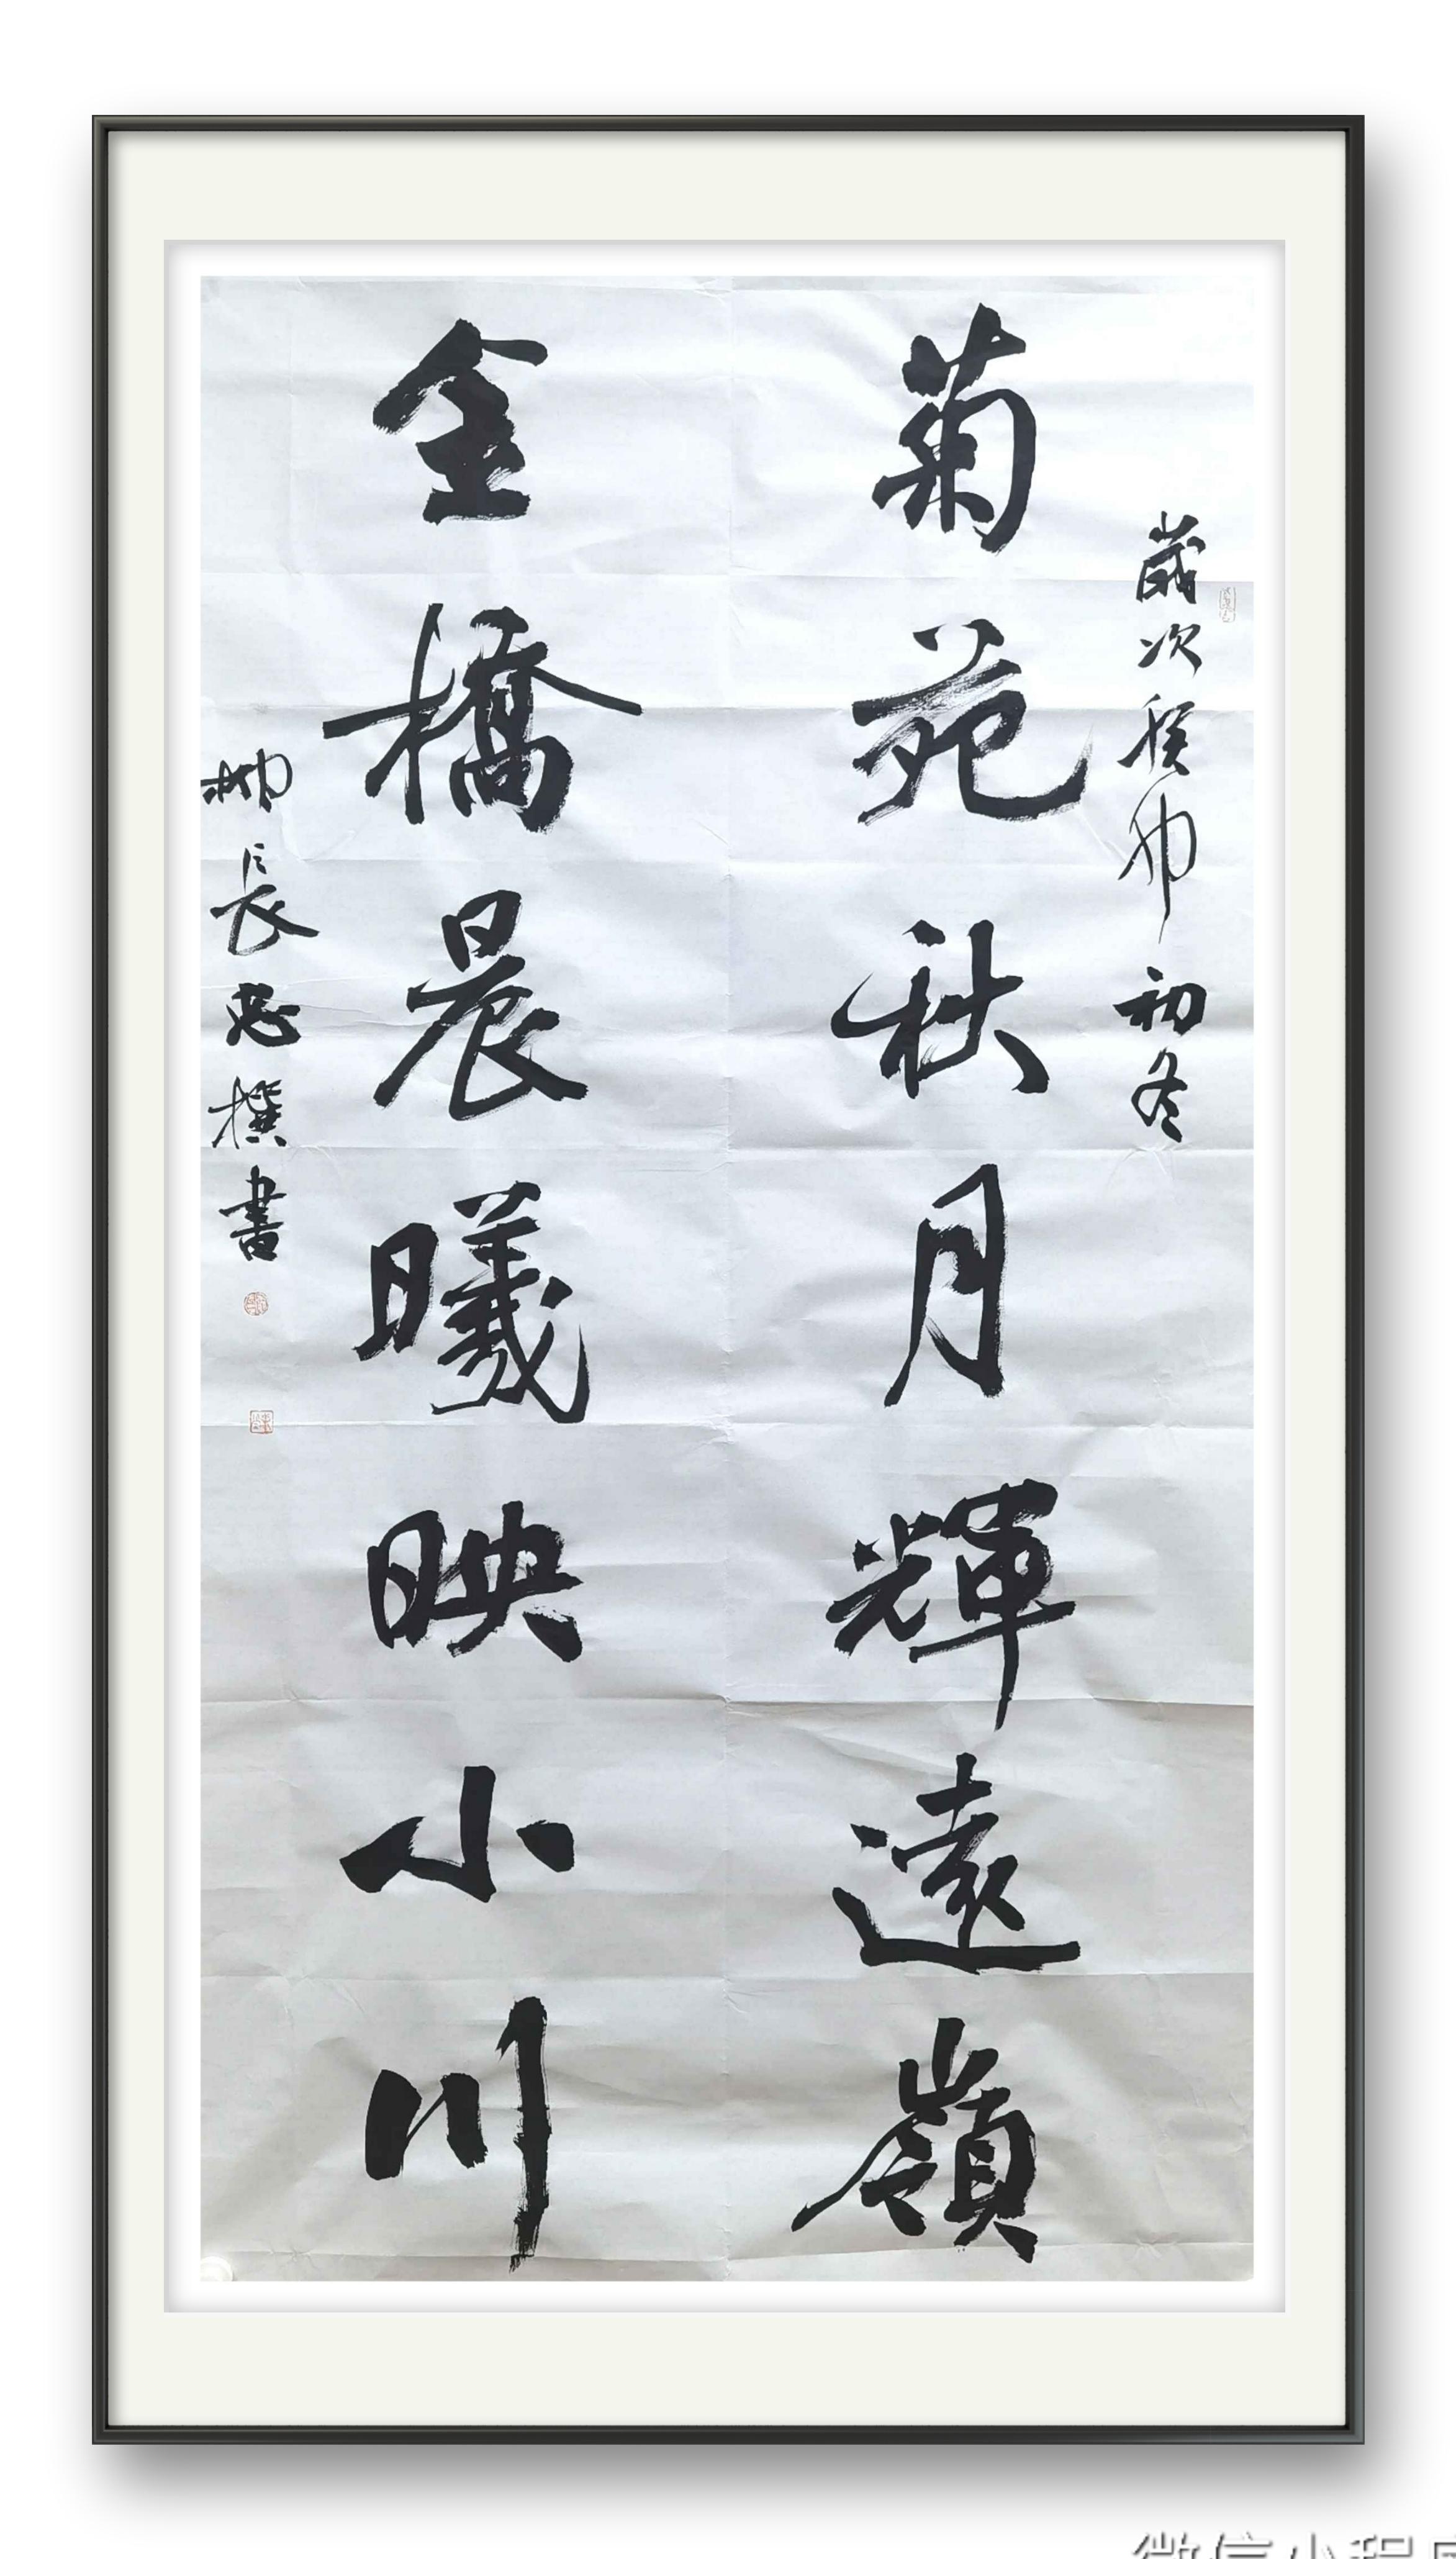 歲次癸卯初冬
菊苑秋月輝遠嶺
金橋晨曦映小川
柳長忠撰書
微信小程序